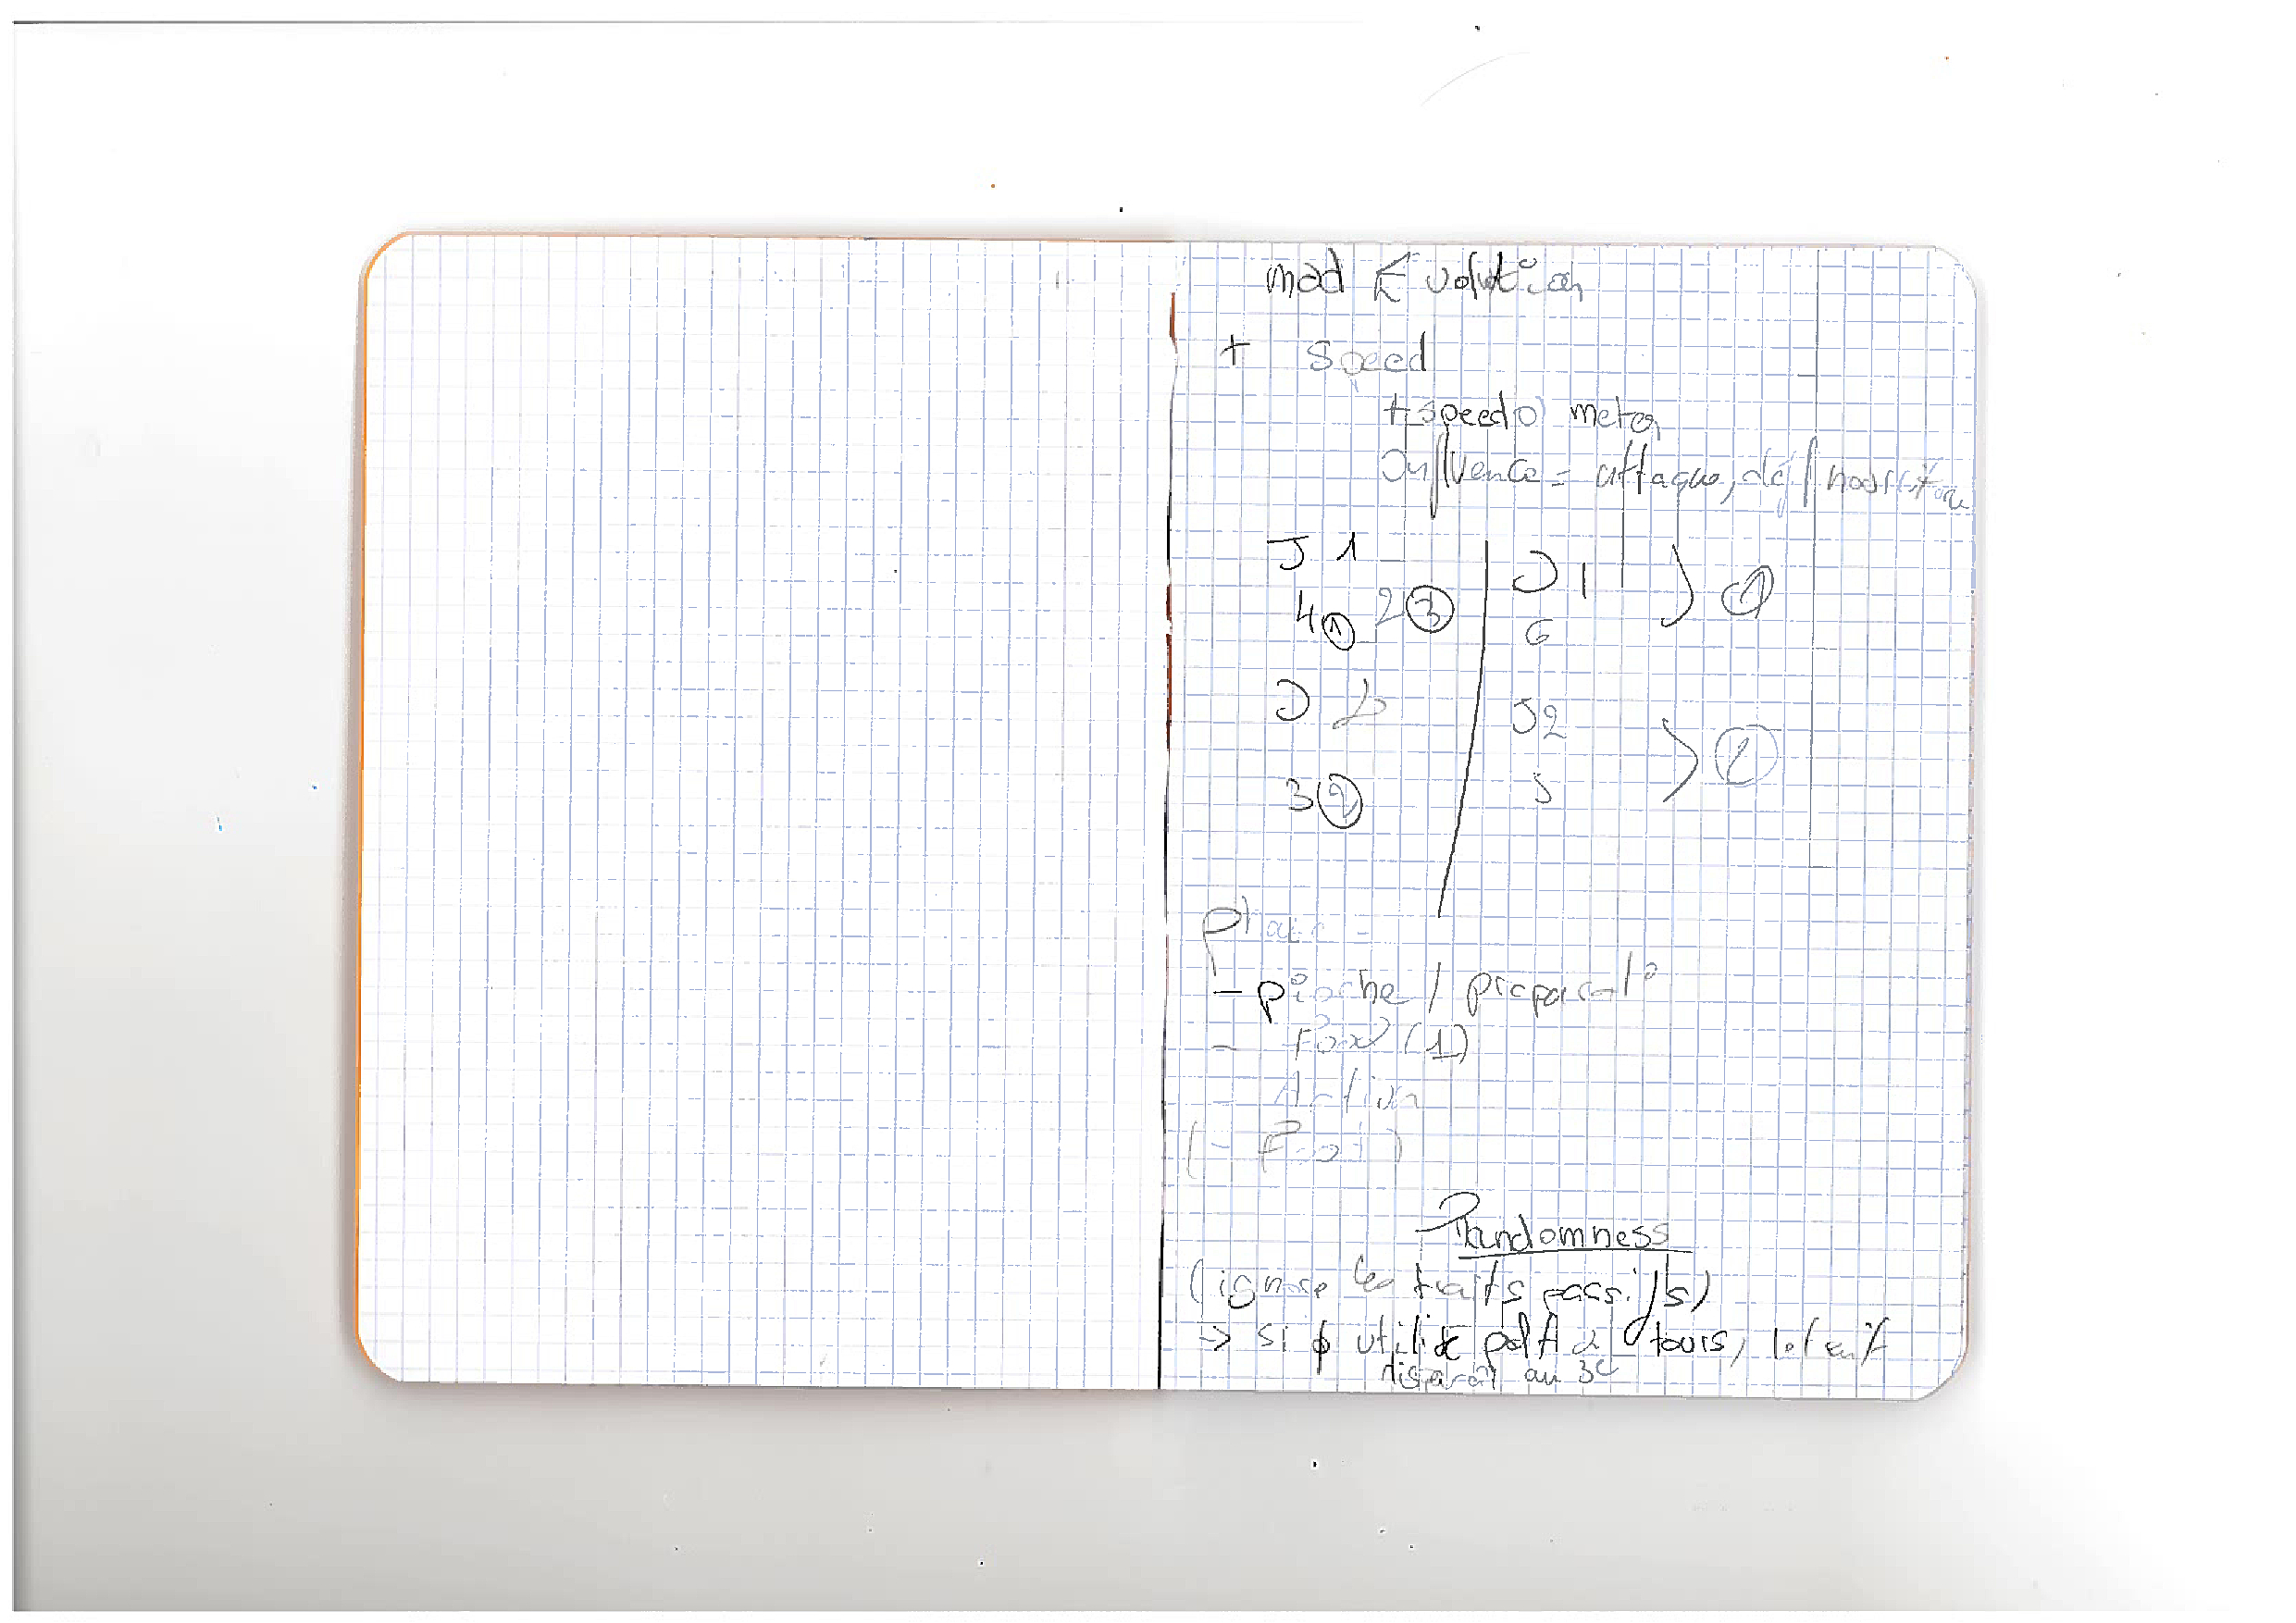 mod Evolut°ion
+ Speed
+ speedometer
Influence = attaque, déf / nourriture
J 1 | J 1 ) ①
4 ① 2 ③ | 6
J 2 | J2 ) ②
3 ② | 5
Phase =
- pioche / préparat°
- Food (1)
- Action
(- Food)
Randomness
(ignore les traits passifs)
=> si ϕ utilisé pdt 2 tours,
disparaît au 3e